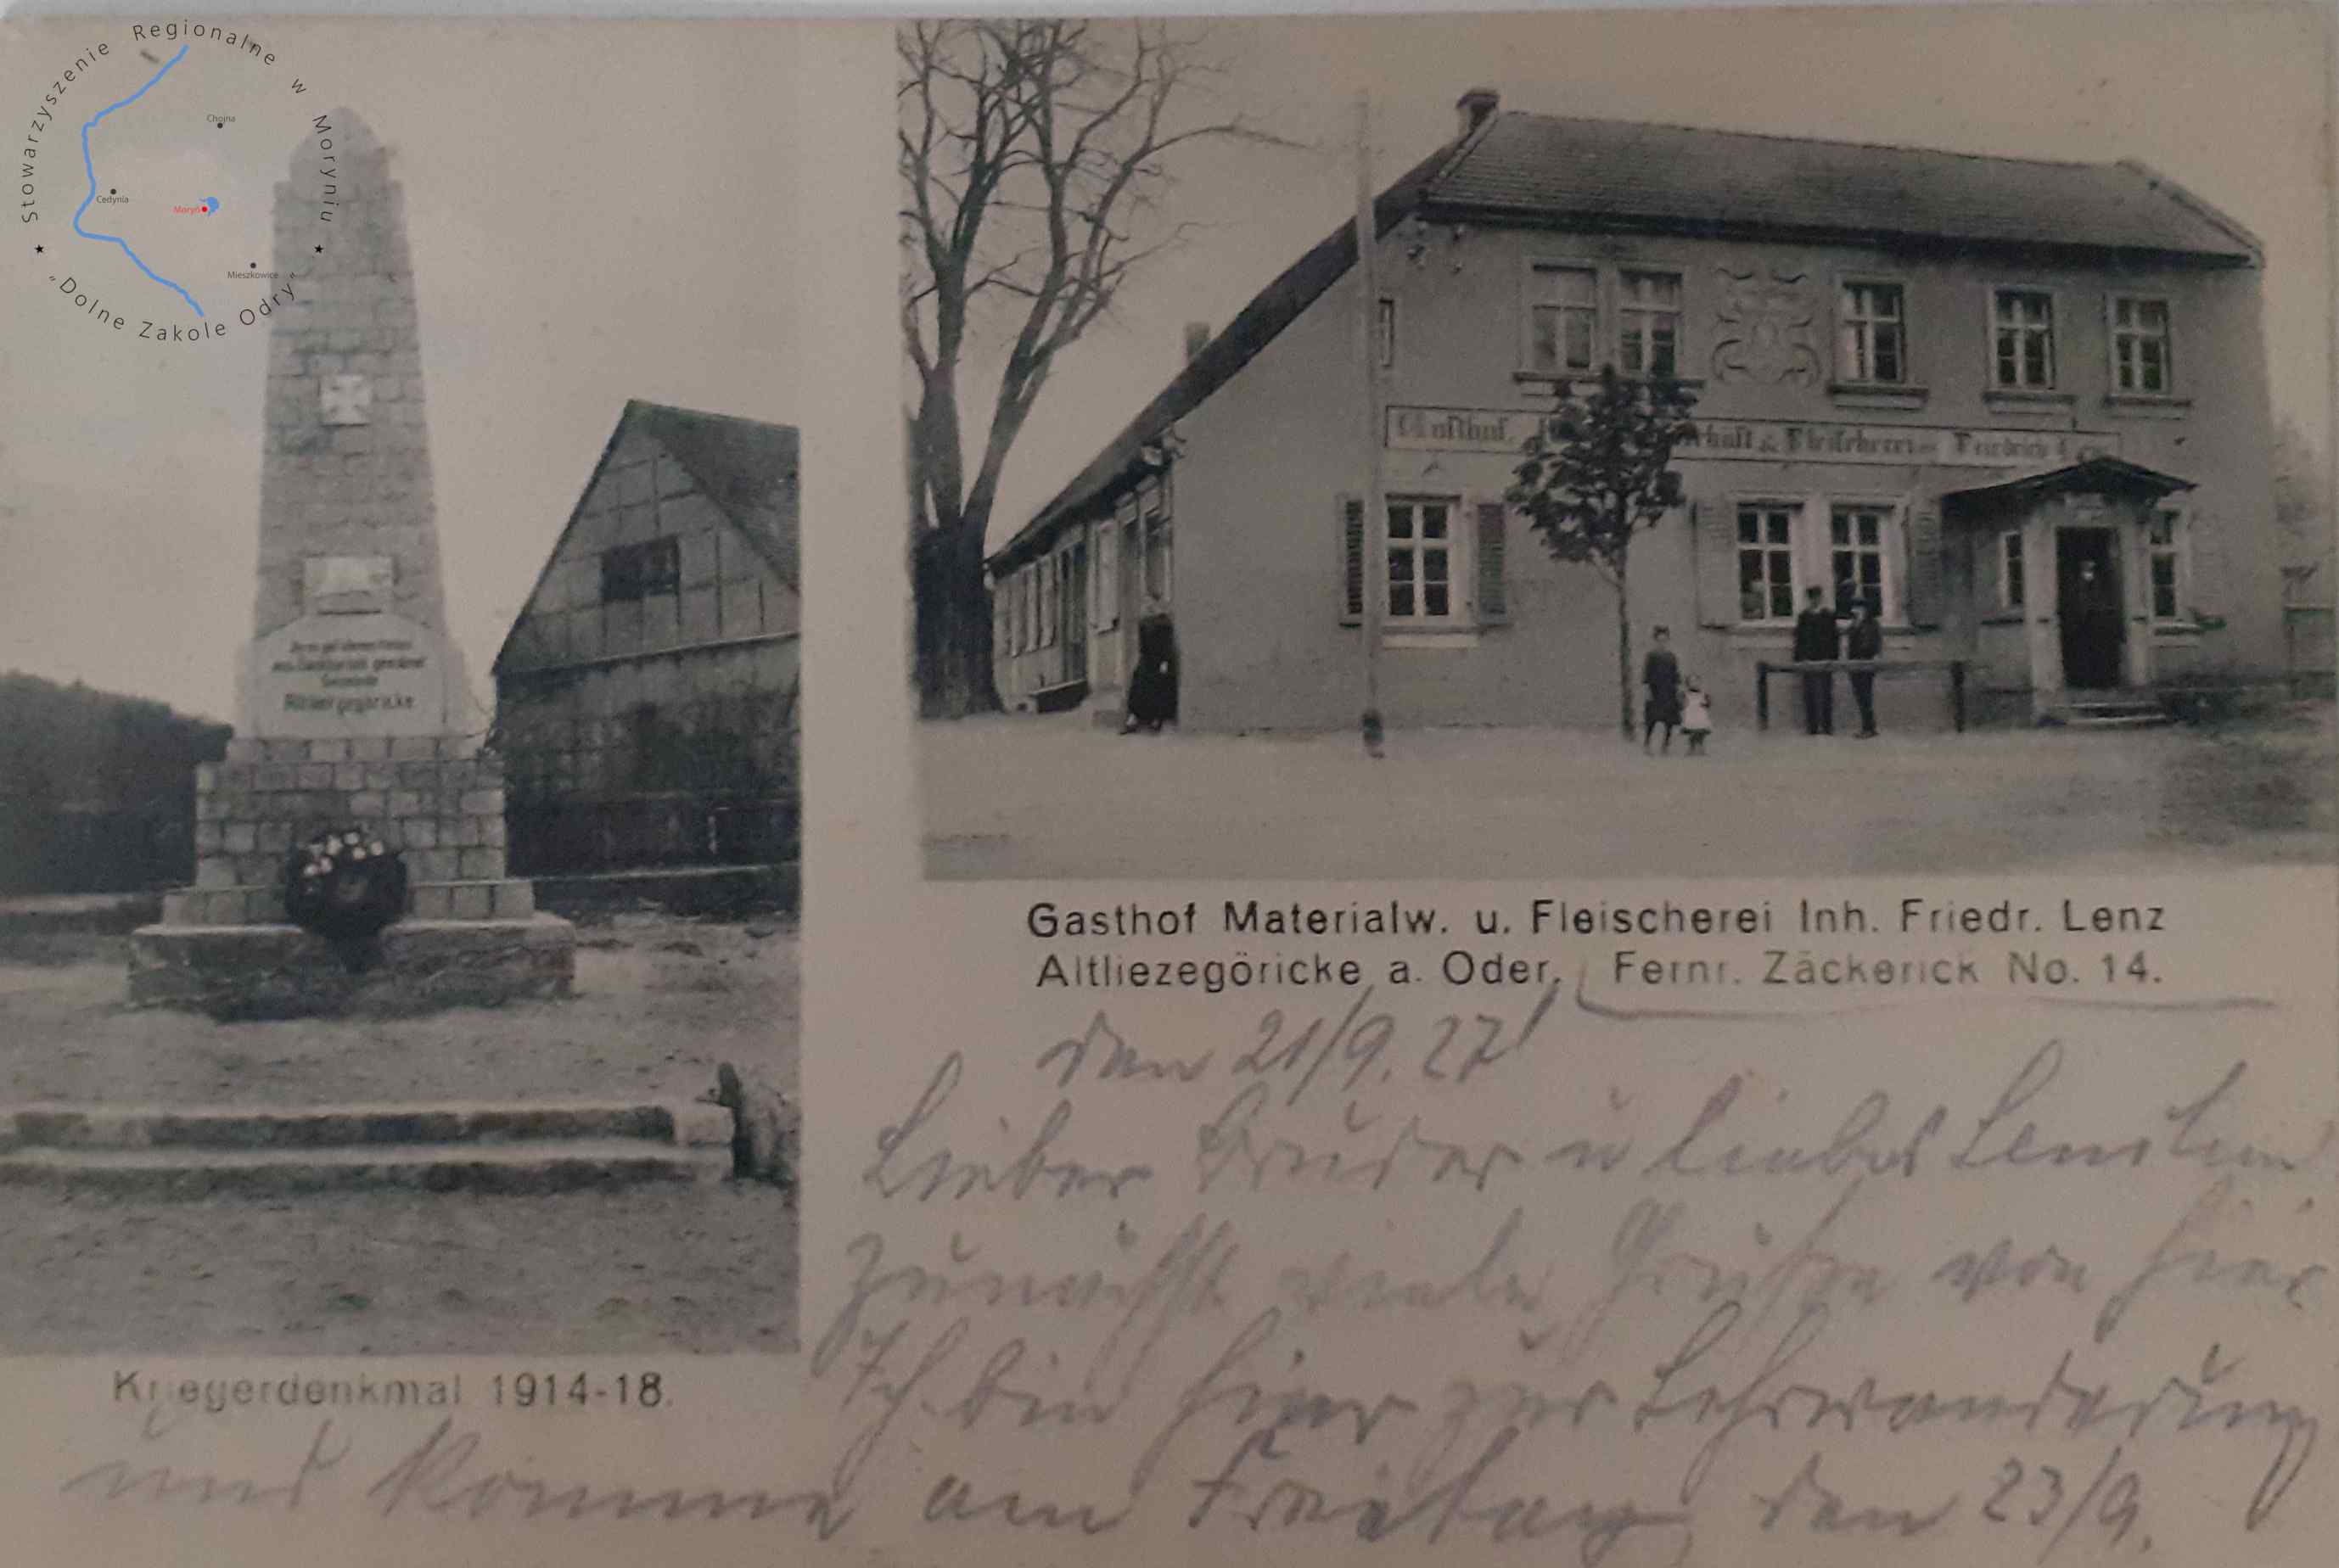 Stowarzyszenie Regionalne w Moryniu
"Dolne Zakole Odry"
Chojna
Cedynia
Moryń
Mieszkowice
Gasthof, & Fleischerei Friedrich
gewidmet
Gemeinde
Altliezegöricke
Gasthof Materialw. u. Fleischerei Inh. Friedr. Lenz
Altliezegöricke a. Oder, Fernr. Zäckerick No. 14.
den 21/9. 27
Lieber Bruder u liebes
zunächst viele Grüße von hier
Ich bin hier zur Lehrwanderung
Kriegerdenkmal 1914-18.
und komme am Freitag den 23/9.